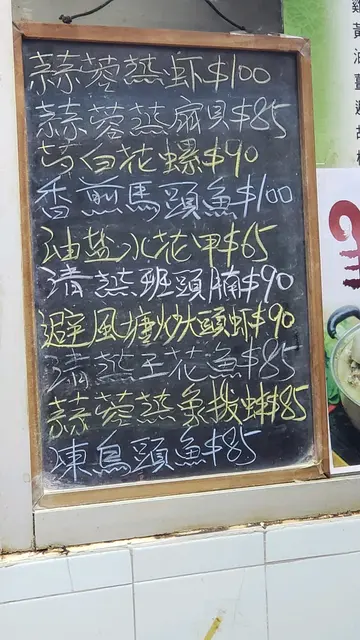 蒜蓉蒸虾$100
蒜蓉蒸扇貝$85
白花螺$90
香煎馬頭魚$100
油盐水花甲$65
清蒸班頭腩$90
避風塘炒大頭虾$90
清蒸王花魚$85
蒜蓉蒸象拔蚌$85
凍烏頭魚$85